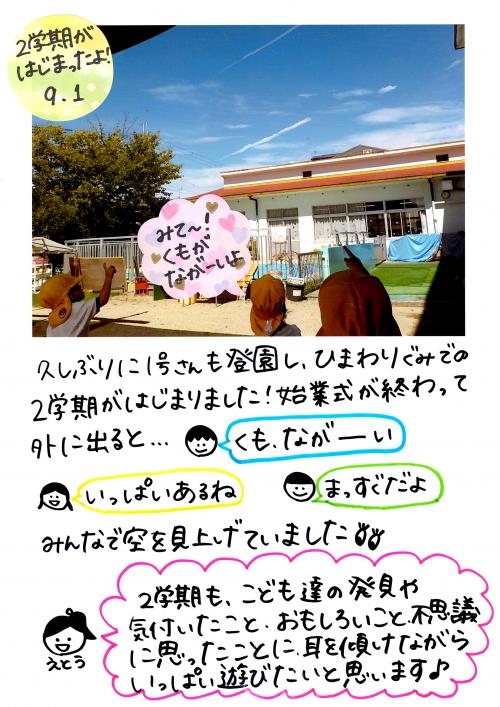 2学期が
はじまったよ!
9.1
みて〜!
くもが
ながーいよ
久しぶりに1号さんも登園し、ひまわりぐみでの
2学期がはじまりました!始業式が終わって
外に出ると…
くも、ながーーい
いっぱいあるね
まっすぐだよ
みんなで空を見上げていました
2学期も、こども達の発見や
気付いたこと、おもしろいこと、不思議
に思ったことに、耳を傾けながら
いっぱい遊びたいと思います♪
えとう